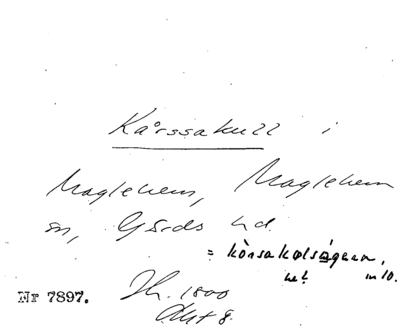 Kårssakull i
Maglehem, Maglehem
sn, Gärds hd.
= körsakolsågaren,
Nr 7897. Th. 1800
Akt 8.